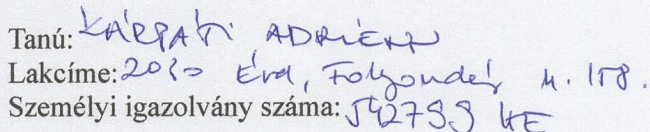 Tanú: KÁRPÁTI ADRIENN
Lakcíme: 2030 Érd, Folyondár u. 158.
Személyi igazolvány száma: 542799 HE